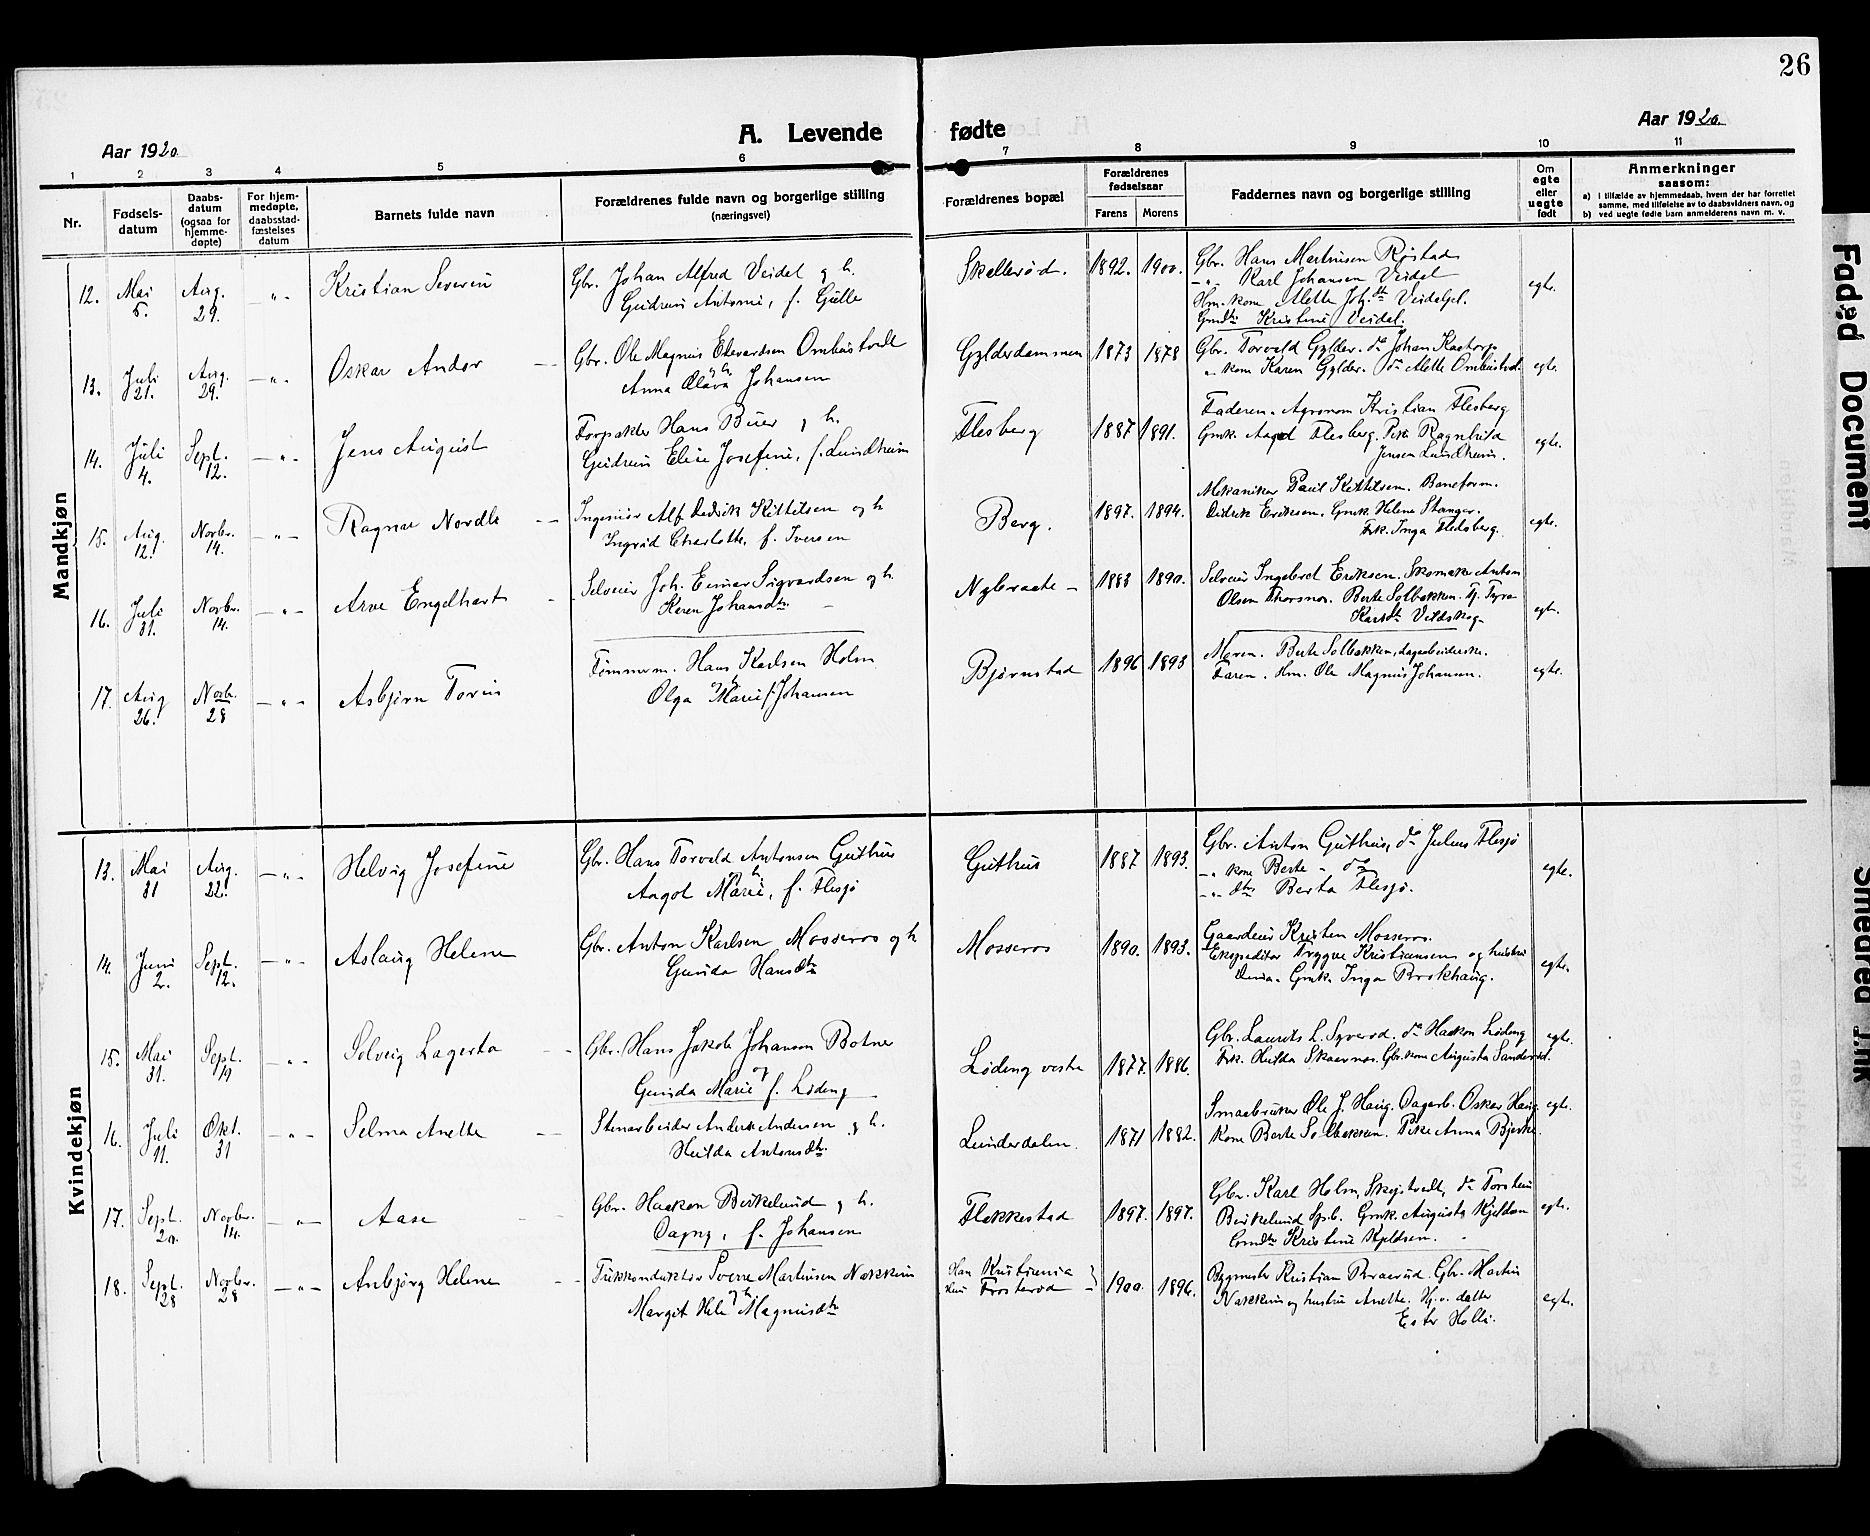 26
A. Levende fødte
Aar 1920.
Aar 1920.
1 2 3 4 5 6 7 8 9 10 11
Nr.
Fødsels-
datum
Daabs-
datum
(ogsaa for
hjemme-
døpte)
For hjem-
medøpte,
daabsstad-
fæstelses
datum
Barnets fulde navn
Forældrenes fulde navn og borgerlige stilling
(næringsvei)
Forældrenes bopæl
Forældrenes
fødselsaar
Farens
Morens
Faddernes navn og borgerlige stilling
Om
egte
eller
uegte
født
Anmerkninger
saasom:
a) i tilfælde av hjemmedaab, hvem der har forrettet
samme, med tilføielse av to daabsvidners navn, og
b) ved uegte fødte barn anmelderens navn m. v.
Mandkjøn
12. Mai 5. Aug. 29. —„— Kristian Severin
Gbr. Johan Alfred Veidel og h.
Gudrun Antonie, f. Gülle
Skallerød. 1892. 1900.
Gbr. Hans Martinsen Røstad
—„— Karl Johansen Veidal
Hm. kone Alette Joh.dtr Veidalspl.
Gmdtr Kristine Veidal.
egte.
13. Juli 21. Aug. 29. —„— Oskar Andor —
Gbr. Ole Magnus Edvardsen Ombustvedt
og h.
Anna Olava Johansen
Gylderdammen 1873 1878
Gbr. Torvald Gylder. do Johan Kastorp
„ kone Karen Gylder. do Alette Ombustvedt.
egte.
14. Juli 4. Sept. 12. —„— Jens August
Forpakter Hans Buer og h.
Gudrun Elise Josefine, f. Lundheim
Flesberg 1887 1891.
Faderen. Agronom Kristian Flesberg
Gmk. Aagot Flesberg. Pike Ragnhild
Jensen Lundheim.
egte.
15. Aug. 12. Novbr. 14. —„— Ragnar Nordli —
Ingeniør Alf Dedrik Kittilsen og h
Ingrid Charlotte, f. Iversen
Berg. 1897. 1894.
Mekaniker Paul Kittilsen. Baneform.
Didrik Eriksen. Gmk. Helene Stanger.
Frk. Inga Flesberg.
egte.
16. Juli 31. Novbr. 14. —„— Arve Engelhart —
Selveier Joh. Einar Sigvardsen og h.
Karen Johansdtr. —
Nybraate — 1883 1890.
Selveier Ingebret Eriksen. Skomaker Anton
Olsen Thorsnes. Berte Solbakken. Tj. Tyra
Karlsdtr Vildskog.
egte.
17. Aug 26. Novbr. 28 —„— Asbjørn Torius
Tømmerm. Hans Karlsen Holm
og h
Olga Marie f. Johansen
Bjørnstad 1896 1893
Moren. Berte Solbakken, dagarbeiderske.
Faren. Hm. Ole Magnus Johansen.
egte.
Kvindekjøn
13. Mai 31 Aug. 22. —„— Helvig Josefine
Gbr. Hans Torvald Antonsen Guthus
og h.
Aagot Marie, f. Flesjø
Guthus 1887 1893.
Gbr. Anton Guthus, do Julius Flesjø
—„— kone Berte — do
—„— dtr Berta Flesjø.
egte.
14. Juni 2. Sept. 12. —„— Aslaug Helene
Gbr. Anton Karlsen Mosseros og h
Gunda Hansdtr
Mosseros 1890. 1893.
Gaardeier Kristen Mosseros.
Ekspeditør Trygve Kristiansen og hustru
Gmk. Inga Brokhaug.
egte.
15. Mai 31. Sept. 19 —„— Solveig Lagerta —
Gbr. Hans Jakob Johansen Botner
og
Gunda Marie f. Løding
Løding vestre 1877. 1886.
Gbr. Laurits L. Syverød. do Haakon Løding
Frk. Hulda Skaernes. Gbr. kone Augusta Sanderød.
egte.
16. Juli 11. Okt. 31 —„— Selma Anette —
Stenarbeider Anders Andersen og h.
Hulda Antonsdtr.
Lunderdalen. 1871 1882.
Smaabruker Ole J. Haug. Dagarb. Oskar Haug
Kone Berte Solbakken. Pike Anna Bjerke.
egte.
17. Sept. 20. Novbr. 14. —„— Aase
Gbr. Haakon Birkelund og h.
Dagny, f. Johansen
Flakkestad 1897. 1897.
Gbr. Karl Holm, Skjstvedt, do Torstein
Birkelund Sp.b. Gmk. Augusta Kjeldsen
Gmdtr Kristine Kjeldsen.
egte.
18. Sept. 28 Novbr. 28 —„— Anbjørg Helene —
Trikkonduktør Sverre Martinsen Nakkim
og h.
Margit Hele Magnusdtr
Han Kristiania
Hun Frosterød 1900. 1896.
Bygmester Kristian Braarud. Gbr. Martin
Nakkim og hustru Anette. Hj.v. datter
Ester Holli.
egte.
Faded Document
Smeared Ink